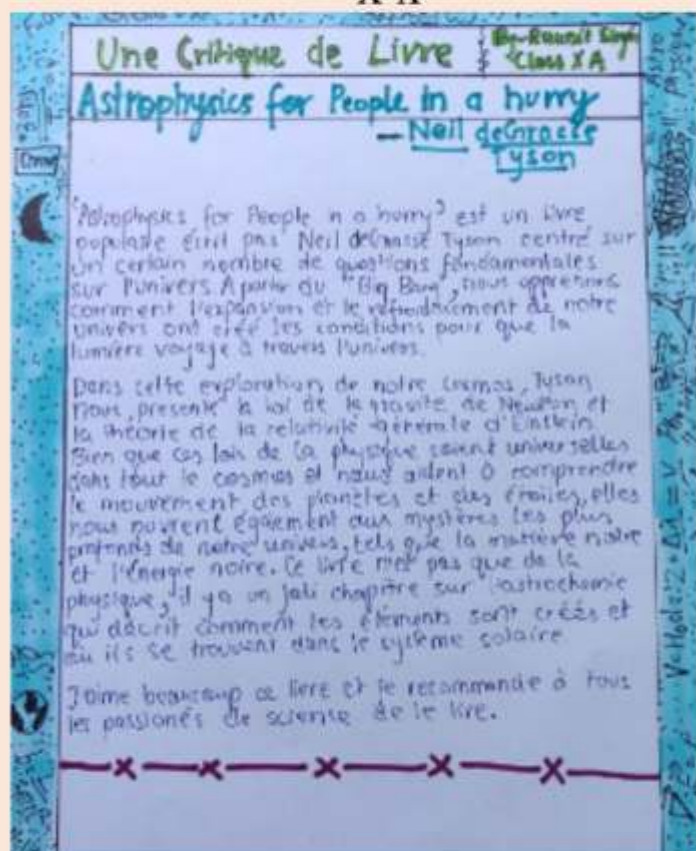 X-X
Une Critique de Livre
By-Raunit Singh
Class X A
Astrophysics for People in a hurry
- Neil deGrasse
Tyson
"Astrophysics for People in a hurry" est un livre
populaire écrit pas Neil deGrasse Tyson centré sur
un certain nombre de questions fondamentales
sur l'univers. A partir du "Big Bang", nous apprenons
comment l'expansion et le refroidissement de notre
univers ont créé les conditions pour que la
lumière voyage à travers l'univers.
Dans cette exploration de notre cosmos, Tyson
nous présente la loi de la gravité de Newton et
la théorie de la relativité générale d'Einstein
Bien que ces lois de la physique soient universelles
dans tout le cosmos et nous aident à comprendre
le mouvement des planètes et des étoiles, elles
nous ouvrent également aux mystères les plus
profonds de notre univers, tels que la matière noire
et l'énergie noire. Ce livre n'est pas que de la
physique, il y a un joli chapitre sur l'astrochemie
qui décrit comment les éléments sont créés et
où ils se trouvent dans le système solaire
J'aime beaucoup ce livre et le recommande à tous
les passionés de science de le lire.